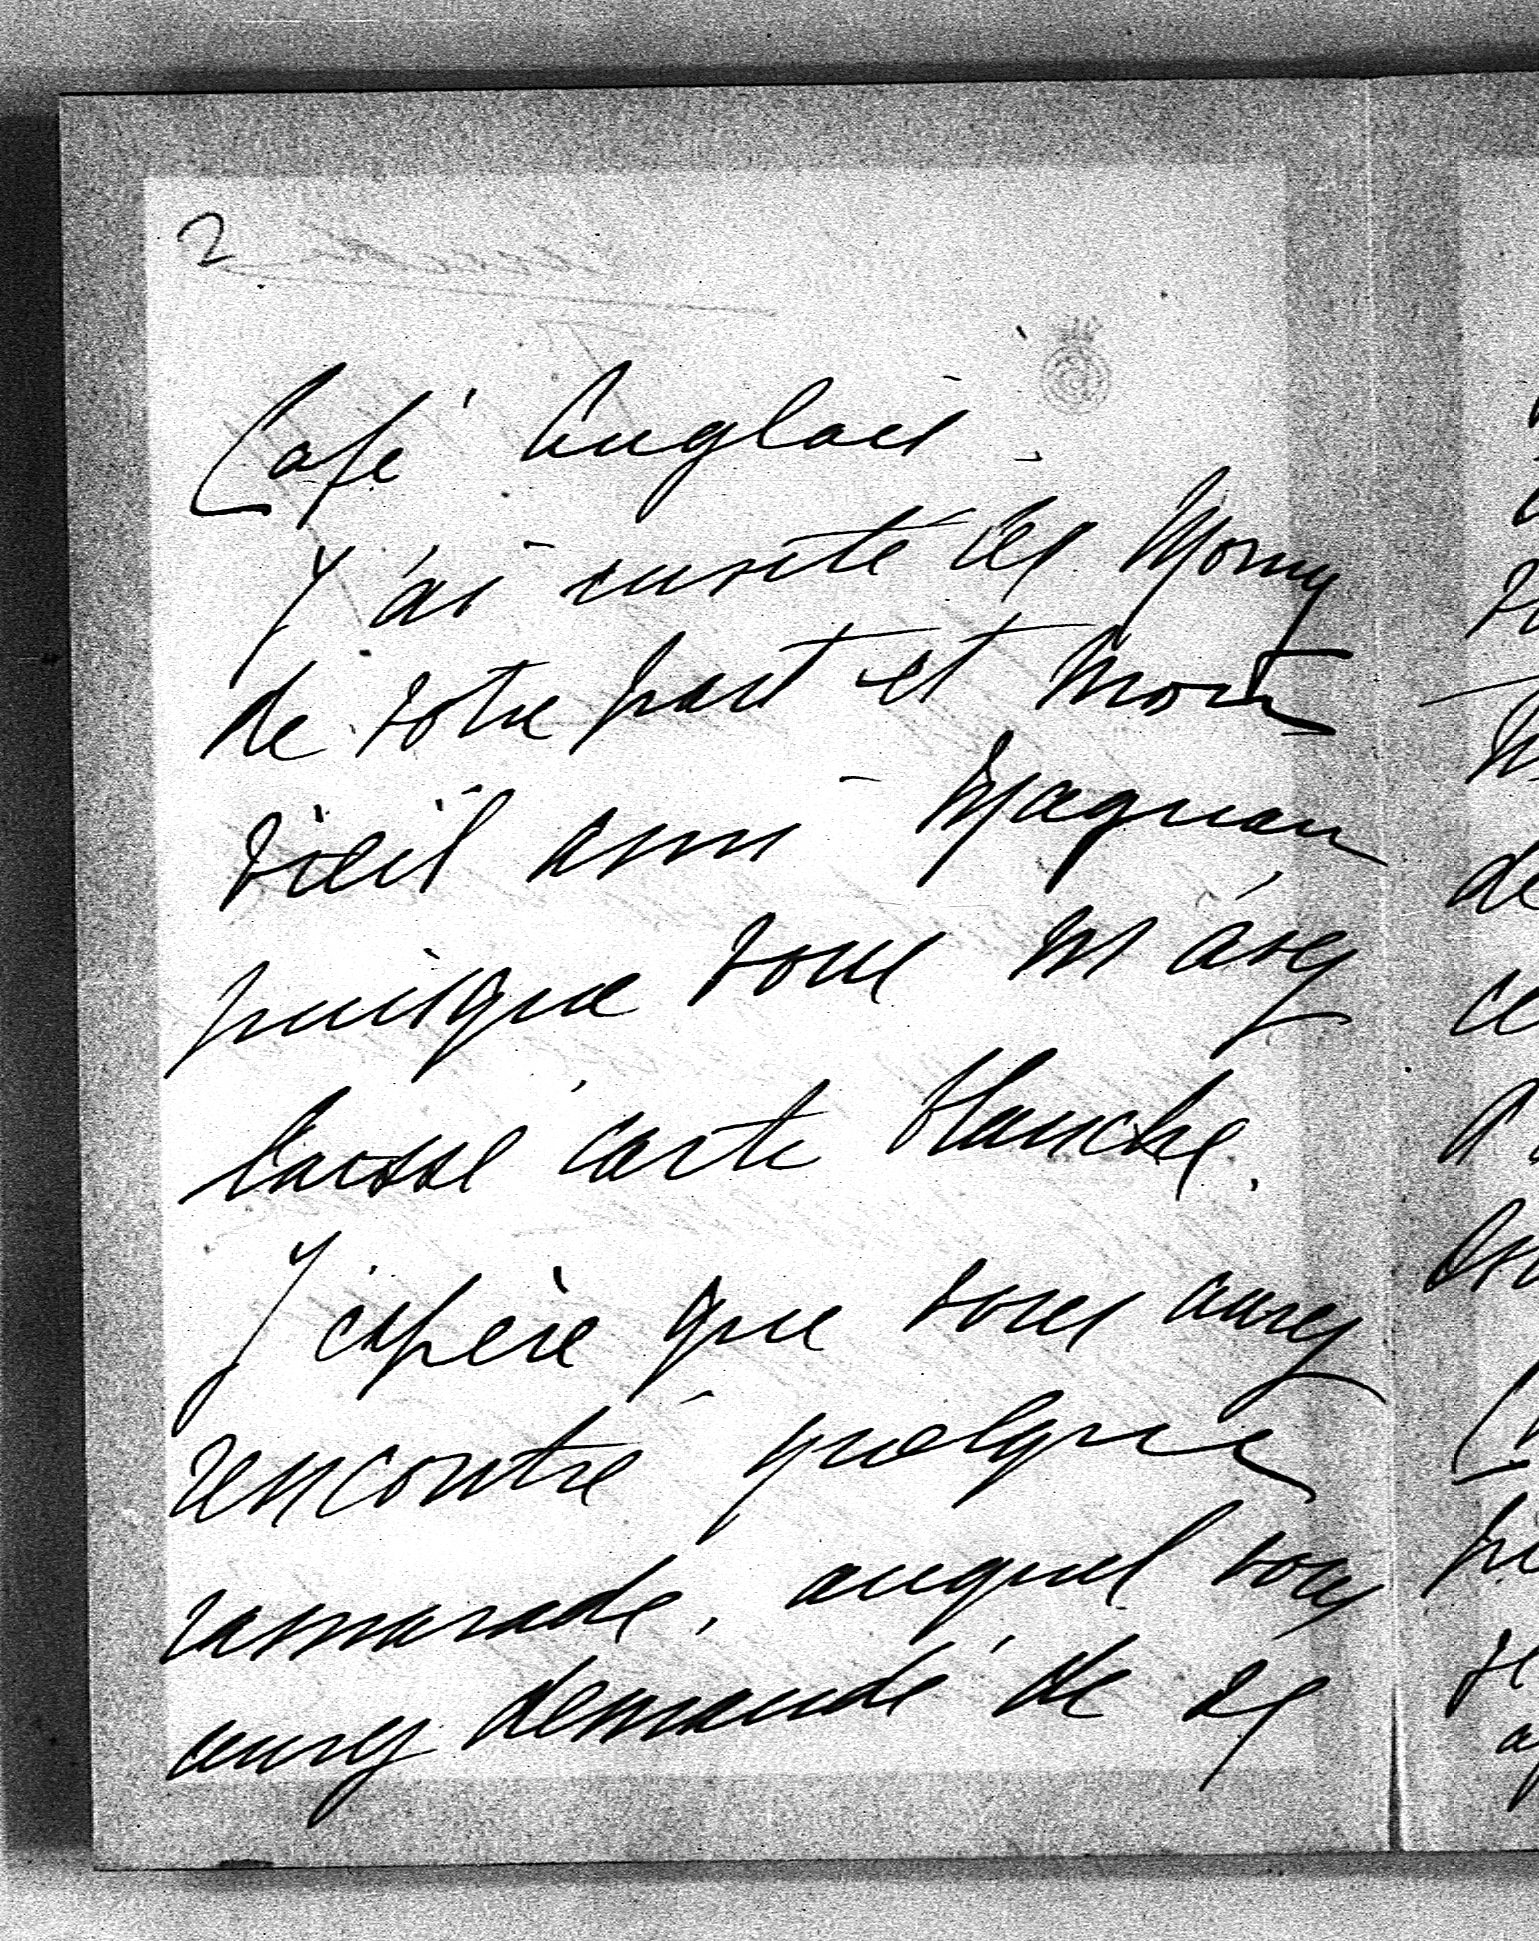 2
Café Anglais.
J'ai invité les Morny
de votre part et mon
vieil ami Magnan
puisque vous m'avez
laissé carte blanche.
J'espère que vous aurez
rencontré quelque
camarade, auquel vous
aurez demandé de se